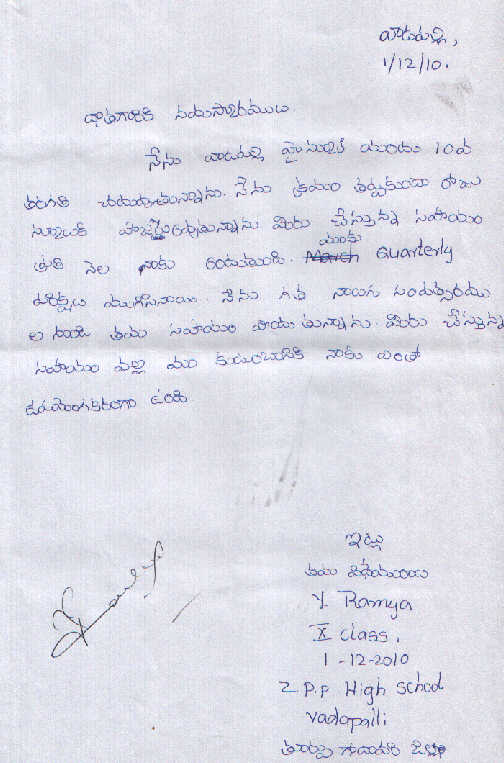 వాడపల్లి,
1/12/10.
దాతగారికి నమస్కారములు
నేను వాడపల్లి హైస్కూల్ యందు 10వ
తరగతి చదువుతున్నాను. నేను క్రమం తప్పకుండా రోజు
స్కూలుకి హాజరవుతున్నాను మీరు చేస్తున్న సహాయం
ప్రతి నెల నాకు అందుతుంది. మాకు Quarterly
పరీక్షలు ముగిసినాయి. నేను గత నాలుగు సంవత్సరము
ల నుండి తమ సహాయం పొందుతున్నాను. మీరు చేస్తున్న
సహాయం వల్ల మా కుటుంబానికి నాకు ఎంతో
ఉపయోగకరంగా ఉంది
ఇట్లు
తమ విధేయురాలు
Y. Ramya
X class,
1-12-2010
Z.P.P High School
Vadapalli
తూర్పు గోదావరి జిల్లా